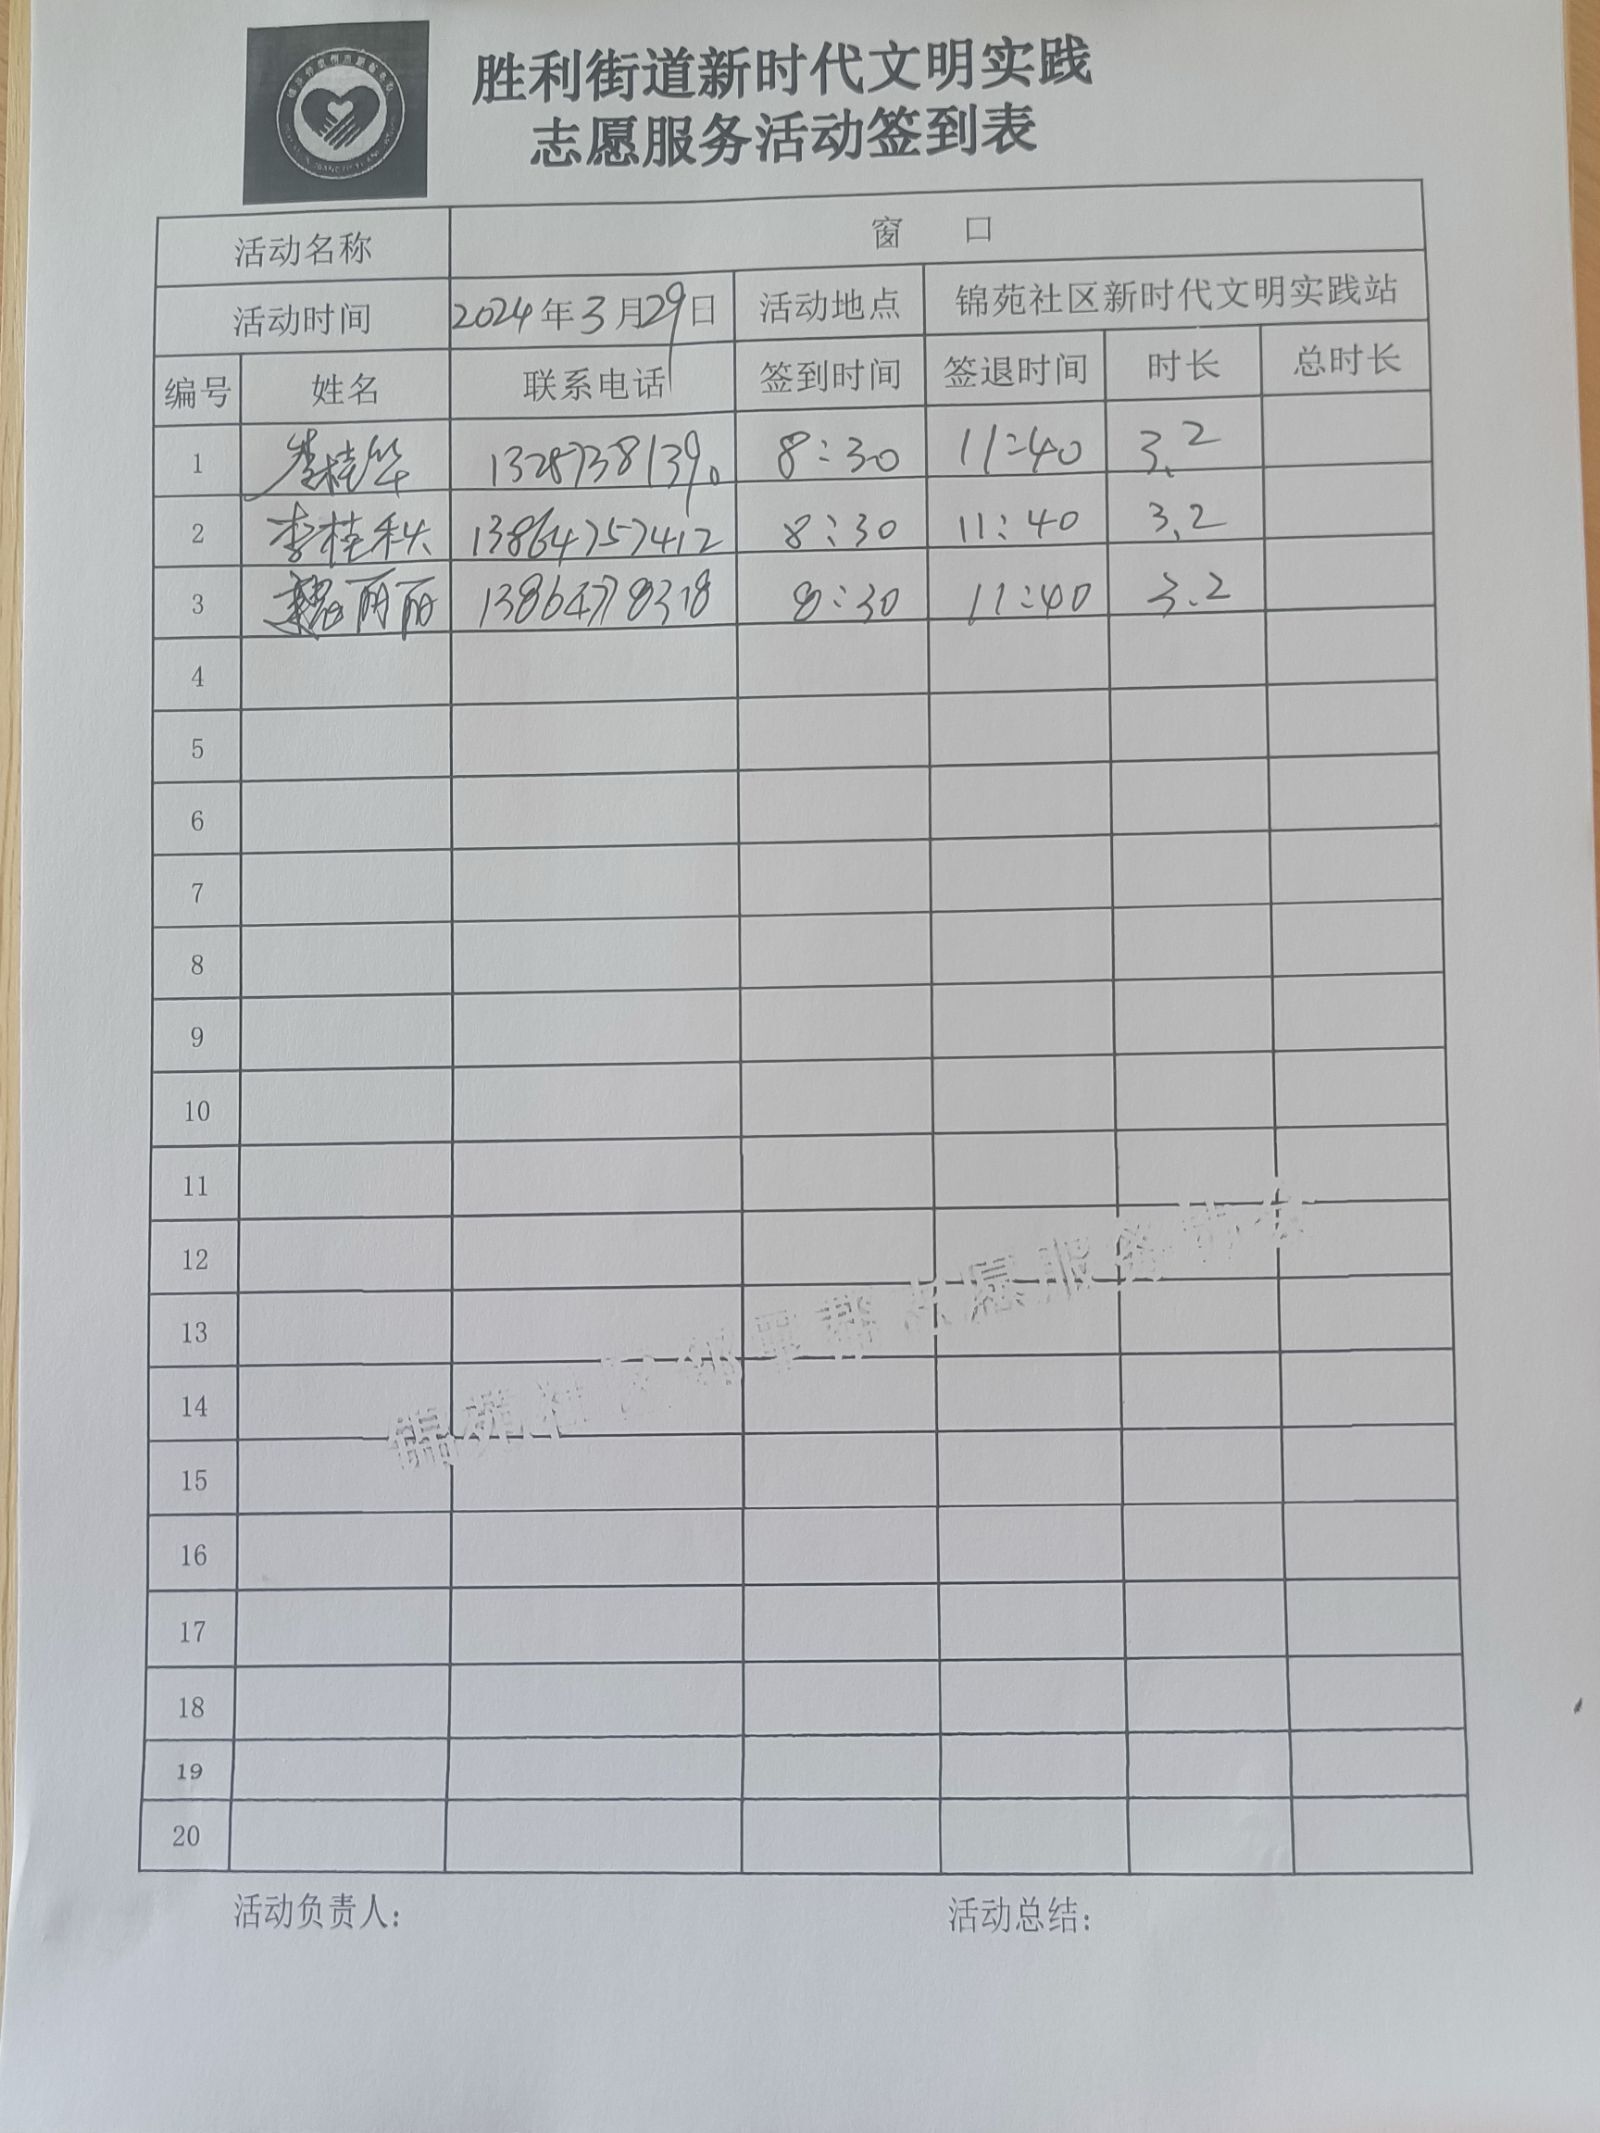 胜利街道新时代文明实践
志愿服务活动签到表
活动名称 窗 口
活动时间 2024年3月29日 活动地点 锦苑社区新时代文明实践站
编号 姓名 联系电话 签到时间 签退时间 时长 总时长
1 李桂华 13287381390 8:30 11:40 3.2
2 李桂秋 13864757412 8:30 11:40 3.2
3 魏丽丽 13864778318 8:30 11:40 3.2
4
5
6
7
8
9
10
11
12
13
14
15
16
17
18
19
20
锦苑社区邻里帮志愿服务
活动负责人: 活动总结: